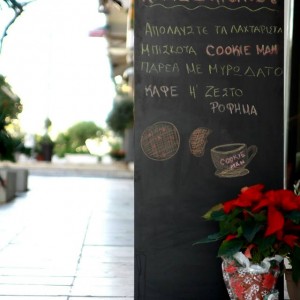 ΑΠΟΛΑΥΣΤΕ ΤΑ ΛΑΧΤΑΡΙΣΤΑ
ΜΠΙΣΚΟΤΑ COOKIE MAM
ΠΑΡΕΑ ΜΕ ΜΥΡΩΔΑΤΟ
ΚΑΦΕ Η' ΖΕΣΤΟ
ΡΟΦΗΜΑ
COOKIE
MAM